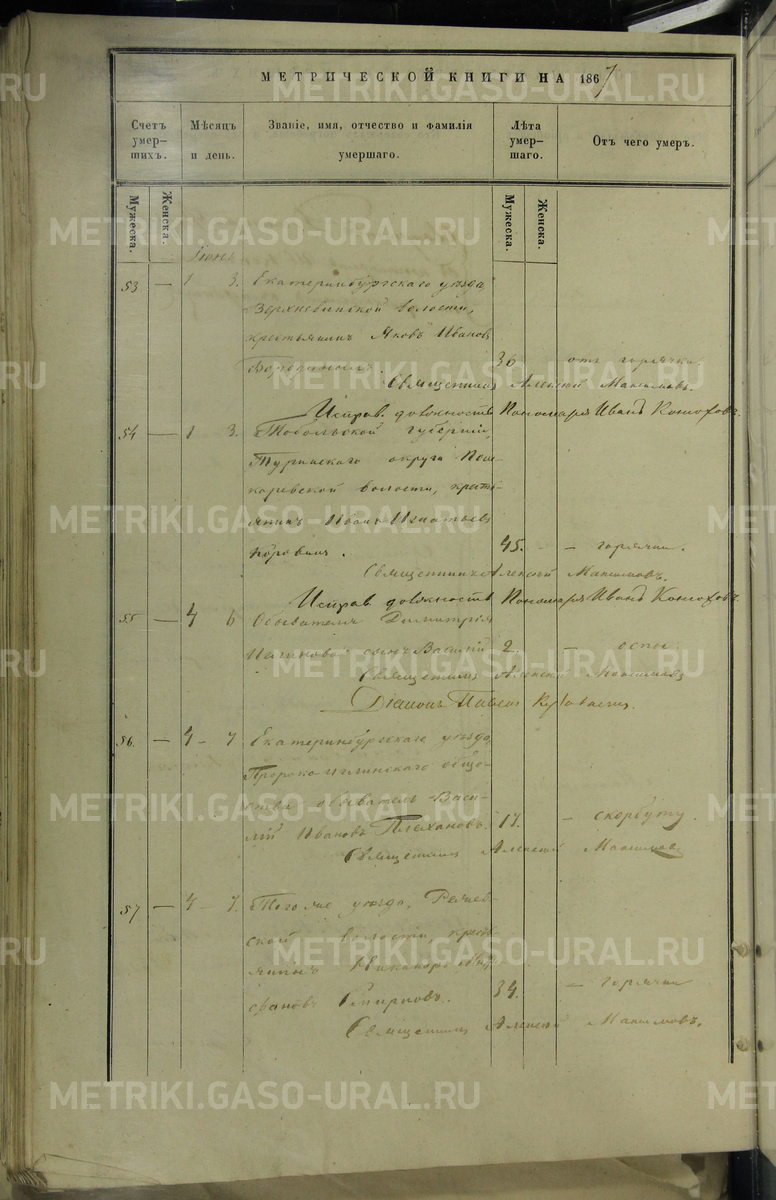 МЕТРИЧЕСКОЙ КНИГИ НА 1867
Счетъ умер-шихъ.
Мѣсяцъ и день.
Званіе, имя, отчество и фамилія умершаго.
Лѣта умер-шаго.
Отъ чего умеръ.
Мужеска.
Женска.
Мужеска.
Женска.
Іюнь
53 — 1 3. Екатеринбургскаго уѣзда
Верхневинской волости,
крестьянинъ Яковъ Ивановъ
36 отъ горячки.
Священникъ Алексѣй Максимовъ.
Исправ. должность Пономаря Иванъ Конюховъ.
54 — 1 3. Тобольской губерніи,
Туринскаго округа
волости, кресть-
янинъ Иванъ Игнатьевъ
45. — — горячки.
Священникъ Алексѣй Максимовъ.
Исправ. должность Пономаря Иванъ Конюховъ.
55 — 4 6 Обывателя Димитрія
сынъ Василій 2. — оспы.
Священникъ Алексѣй Максимовъ
Діаконъ Павелъ
56. — 4 — 7 Екатеринбургскаго уѣзда,
обще-
ства обыватель Васи-
лій Ивановъ Плехановъ. 17. — скорбуту.
Священникъ Алексѣй Максимовъ
57 — 4 — 7. Того же уѣзда, Режев-
ской волости, кресть-
янинъ Никаноръ
Смирновъ. 34. — горячки
Священникъ Алексѣй Максимовъ.
METRIKI.GASO-URAL.RU